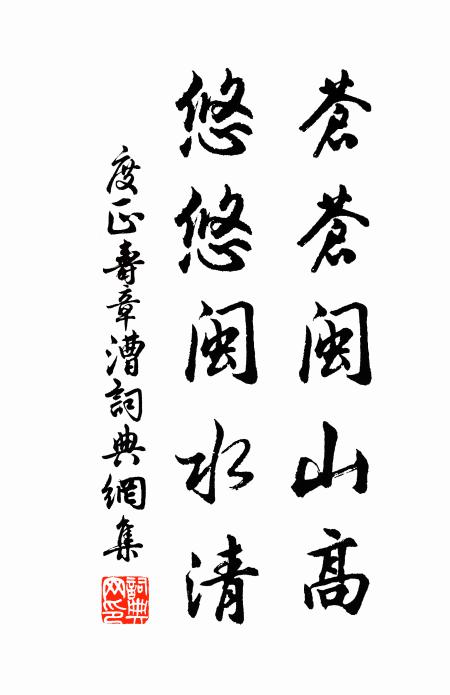 蒼蒼閩山高
悠悠閩水清
度正壽章漕詞典網集
詞典網印